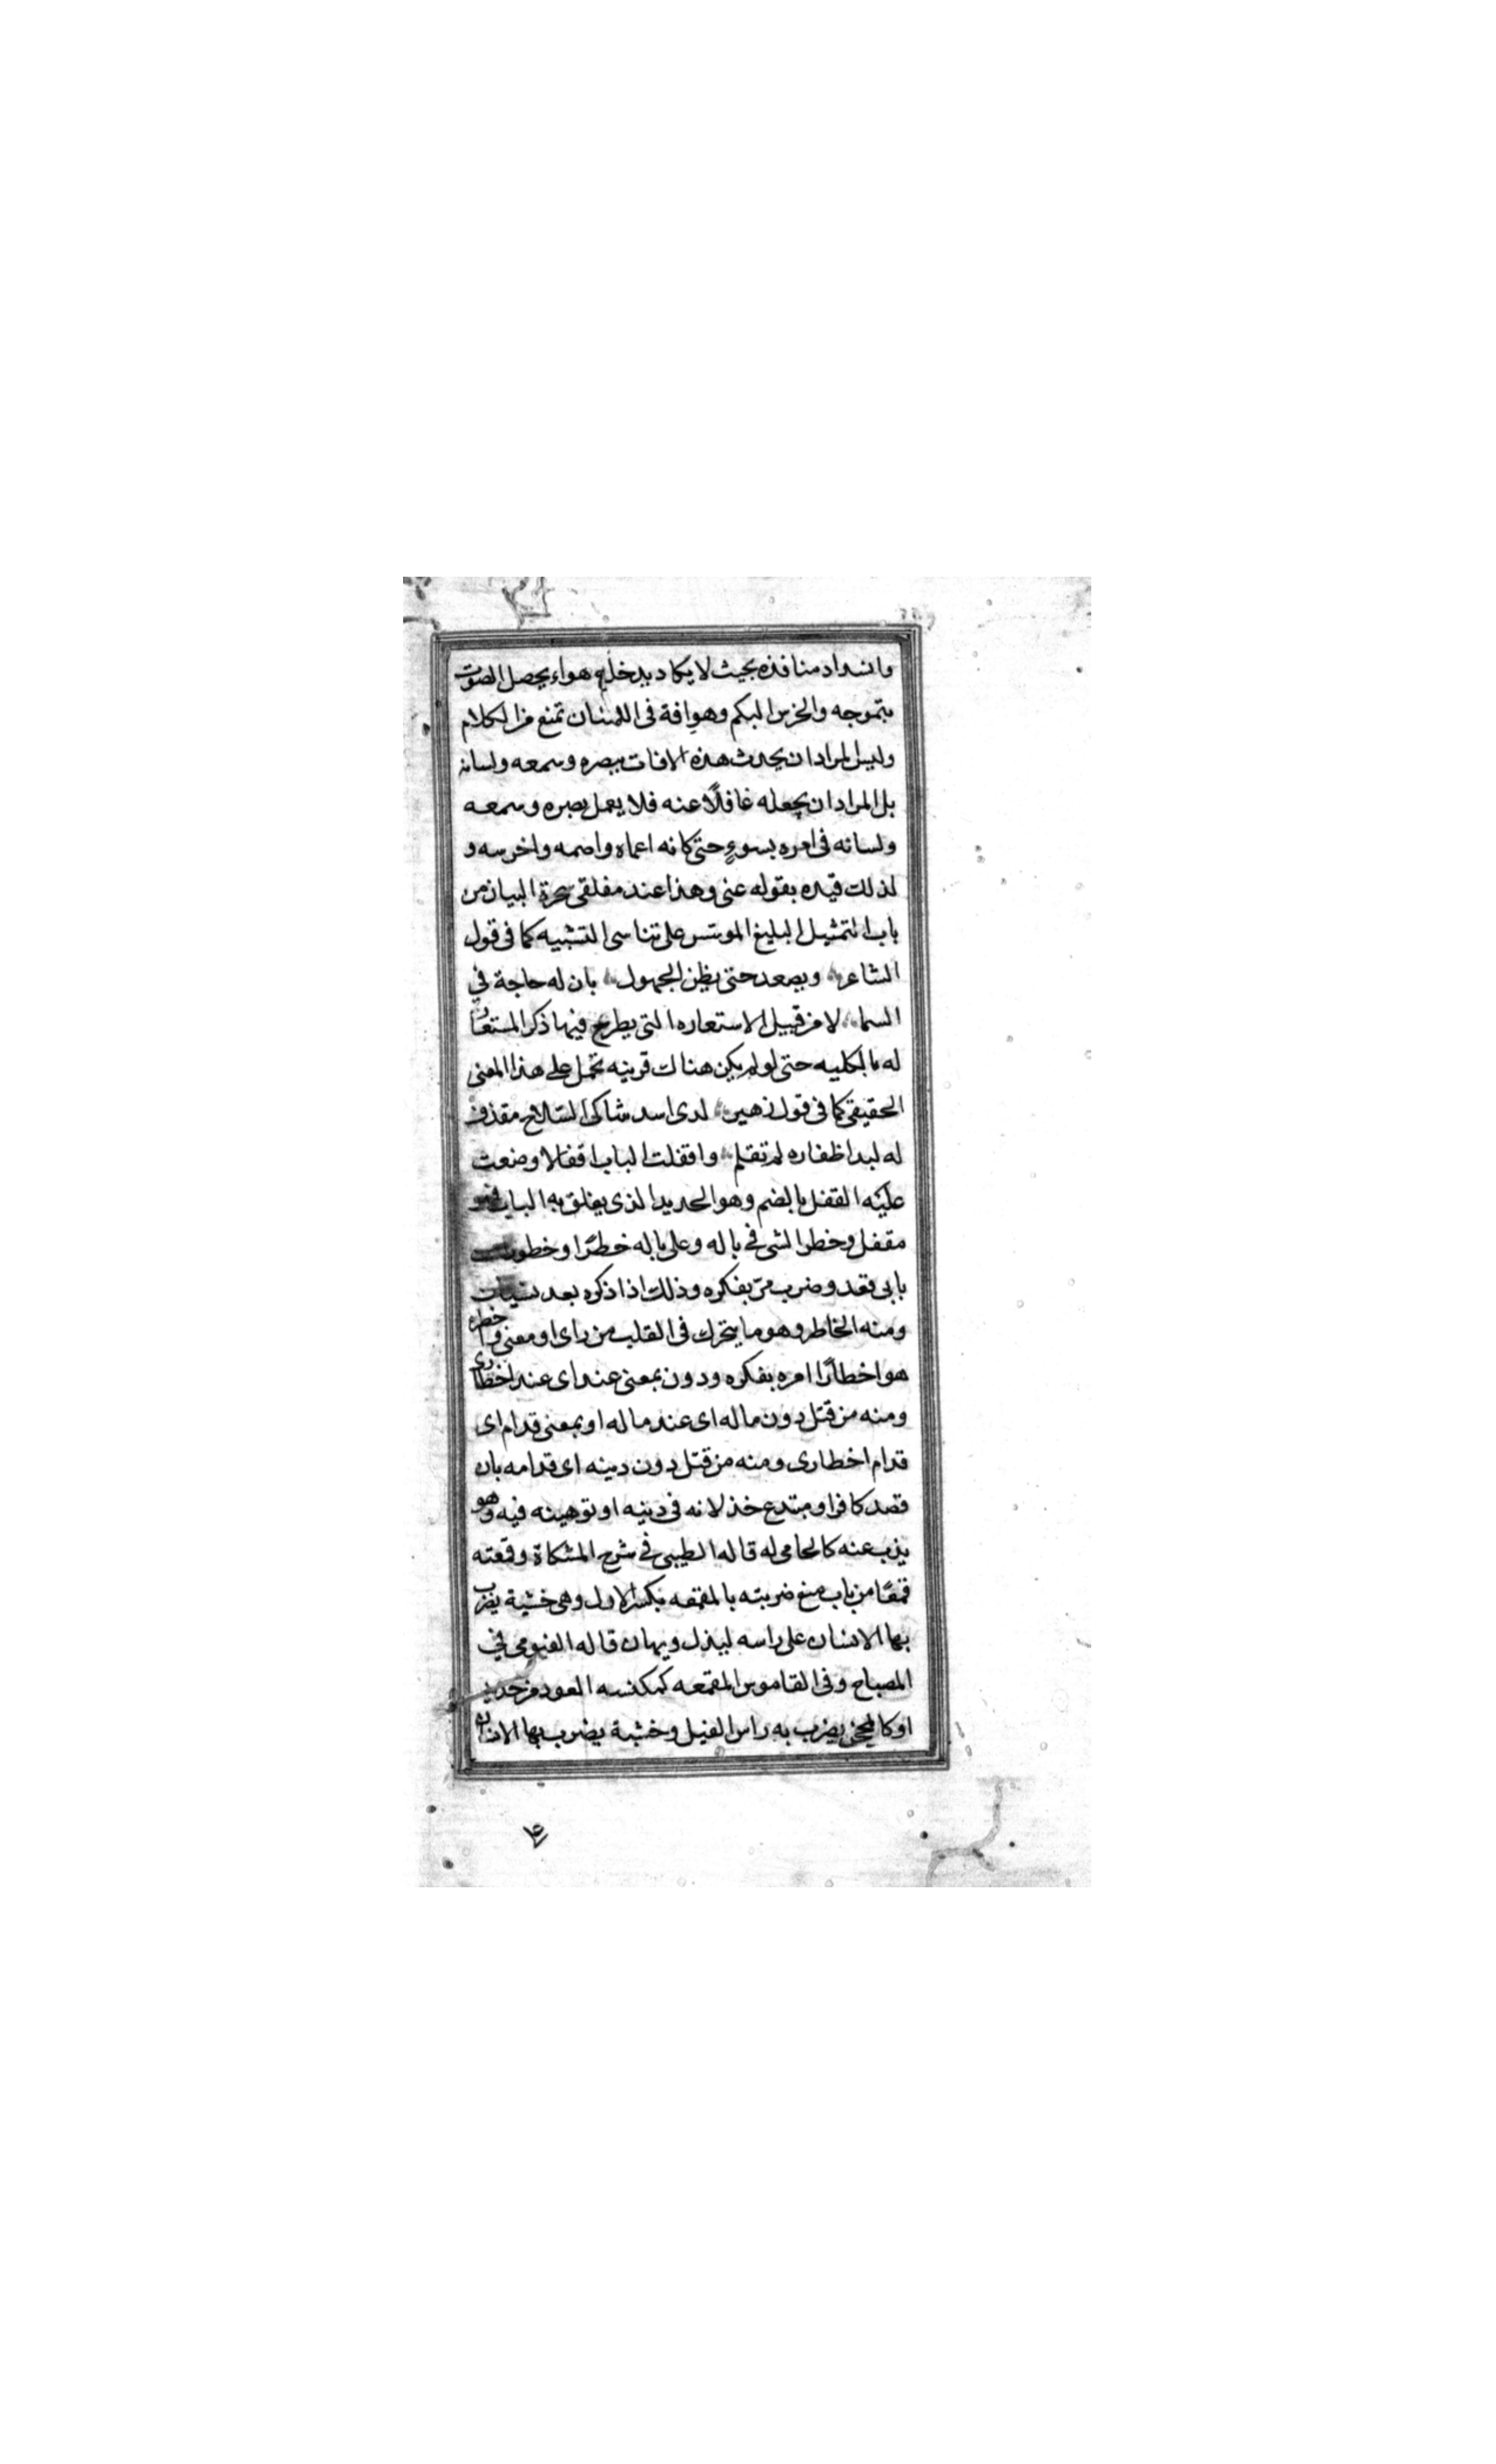 وانسداد منافذه بحيث لا يكاد يدخله هواء يحصل الصوت
بتموجه والخرس البكم وهو افة فى اللسان تمنع من الكلام
وليس المراد ان يحدث هذه الافات ببصره وسمعه ولسانه
بل المراد ان يجعله غافلًا عنه فلا يعمل بصره وسمعه
ولسانه فى امره بسوءٍ حتى كانه اعماه واصمه واخرسه و
لذلك قيده بقوله عنى وهذا عند مفلقى سحرة البيان من
باب التمثيل البليغ الموسس على تناسى التشبيه كما فى قول
الشاعر ويصعد حتى يظن الجهول بان له حاجة في
السما لا من قبيل الاستعاره التى يطرح فيها ذكر المستعار
له بالكليه حتى لو لم يكن هناك قرينه تحمل على هذا المعنى
الحقيقى كما فى قول زهير لدى اسد شاكى السلاح مقذف
له لبد اظفاره لم تقلم واقفلت الباب اقفالا وضعت
عليه القفل بالضم وهو الحديد الذى يغلق به الباب فهو
مقفل وخطر الشى في باله وعلى باله خطرًا وخطورا من
بابى قعد وضرب مرّ بفكره وذلك اذا ذكره بعد نسيان
ومنه الخاطر وهو ما يتحرك فى القلب من راى او معنى واخطره
هو اخطارًا امره بفكره ودون بمعنى عند اى عند اخطارى
ومنه من قتل دون ماله اى عند ماله او بمعنى قدام اى
قدام اخطارى ومنه من قتل دون دينه اى قدامه بان
قصد كافر او مبتدع خذلانه فى دينه او توهينه فيه وهو
يذب عنه كالحامى له قاله الطيبى في شرح المشكاة وقمعته
قمعًا من باب منع ضربته بالمقمعه بكسر الاول وهى خشبة يضرب
بها الانسان على راسه ليذل ويهان قاله الفيومى في
المصباح وفى القاموس المقمعه كمكنسه العمود من حديد
او كالمحجن يضرب به راس الفيل وخشبة يضرب بها الانسان